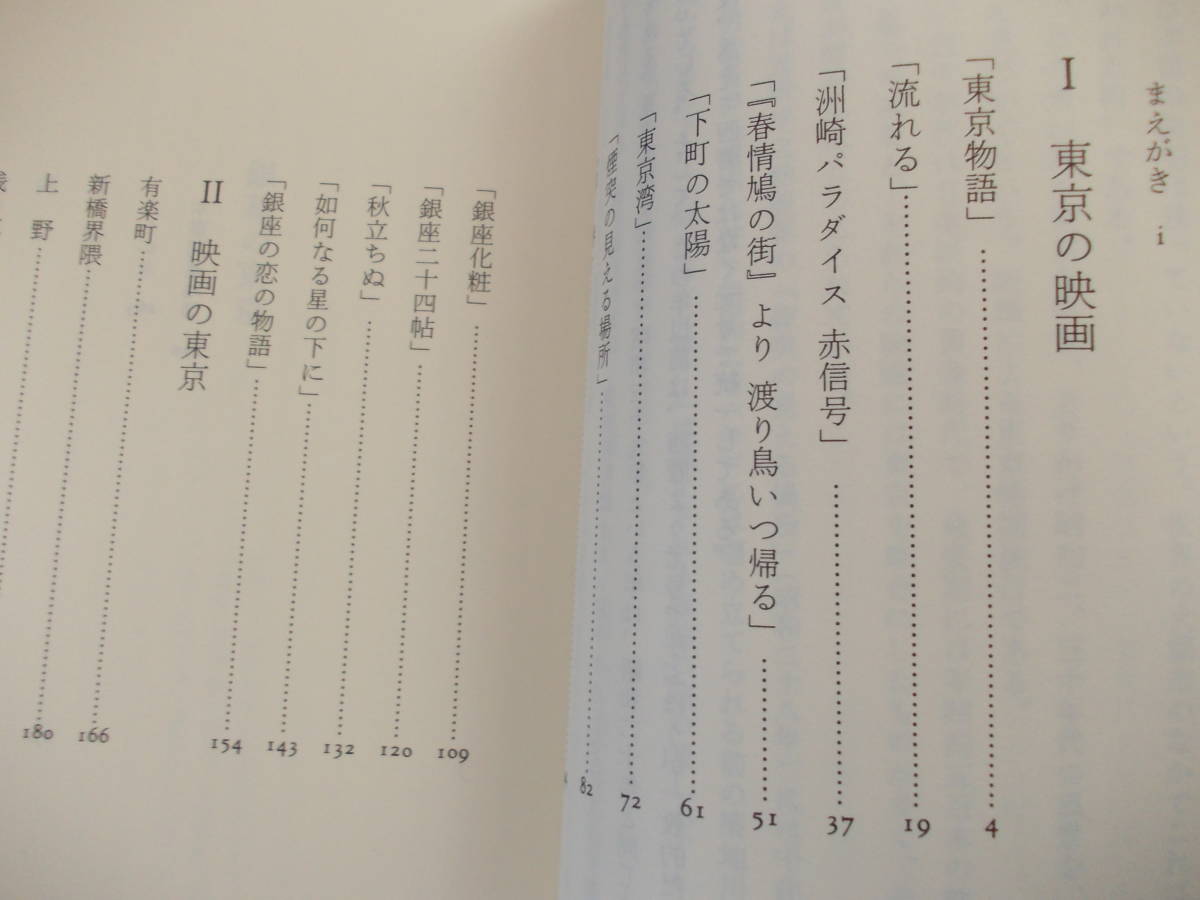 まえがき i
I 東京の映画
「東京物語」………4
「流れる」………19
「洲崎パラダイス 赤信号」………37
「『春情鳩の街』より 渡り鳥いつ帰る」………51
「下町の太陽」………61
「東京湾」………72
「煙突の見える場所」………82
「銀座化粧」………109
「銀座二十四帖」………120
「秋立ちぬ」………132
「如何なる星の下に」………143
「銀座の恋の物語」………154
II 映画の東京
有楽町………166
新橋界隈………180
上野………